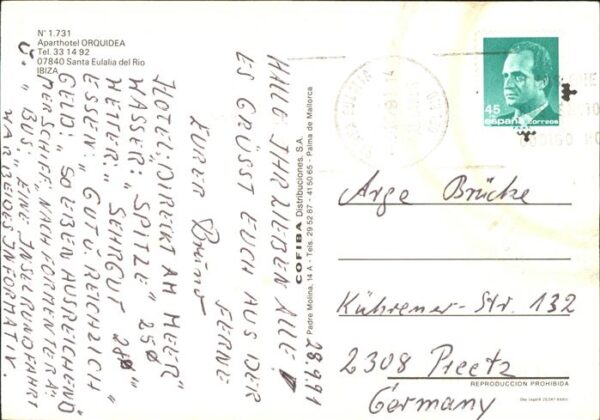 N° 1.731
Aparthotel ORQUIDEA
Tel. 33 14 92
07840 Santa Eulalia del Rio
IBIZA
HALLO IHR LIEBEN ALLE
ES GRÜSST EUCH AUS DER
FERNE
EURER Bruno
HOTEL: „DIREKT AM MEER"
WASSER: „SPITZE" 25°
WETTER: „SEHR GUT 28°"
ESSEN: „GUT U. REICHLICH
GELD „SO EBEN AUSREICHEND
PER SCHIFF „NACH FORMENTERA"
U. „BUS": EINE INSELRUNDFAHRT
WAR BEIDES INFORMATIV.
28.9.91
COFIBA Distribuciones, S.A.
Padre Molina, 14 A - Tels. 29 52 87 - 41 50 65 - Palma de Mallorca
45
españa
correos
Arge Brücke
Kührener-Str. 132
2308 Preetz
Germany
REPRODUCCION PROHIBIDA